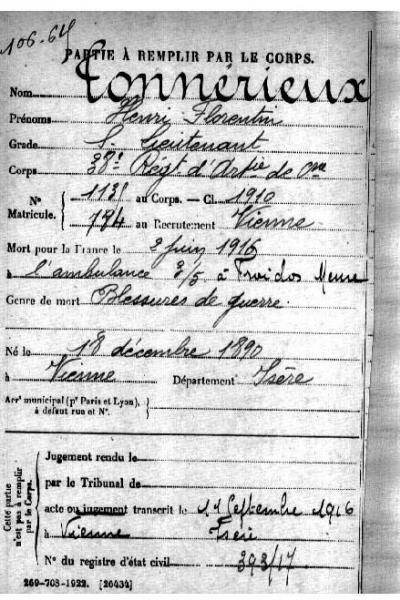 106-64
PARTIE À REMPLIR PAR LE CORPS.
Nom Tonnérieux
Prénoms Henri Florentin
Grade S. Lieutenant
Corps 38e Régt d'Artie de Cne
N° 1131 au Corps. — Cl. 1910
Matricule. 784 au Recrutement Vienne
Mort pour la France le 2 juin 1916
à l'ambulance 2/5 à Froidos Meuse
Genre de mort Blessures de guerre.
Né le 18 décembre 1890
à Vienne Département Isère
Arrt municipal (pr Paris et Lyon),
à défaut rue et N°.
Cette partie
n'est pas à remplir
par le Corps.
Jugement rendu le
par le Tribunal de
acte ou jugement transcrit le 11 Septembre 1916
à Vienne Isère
N° du registre d'état civil 393/17
269-708-1922. [26434]